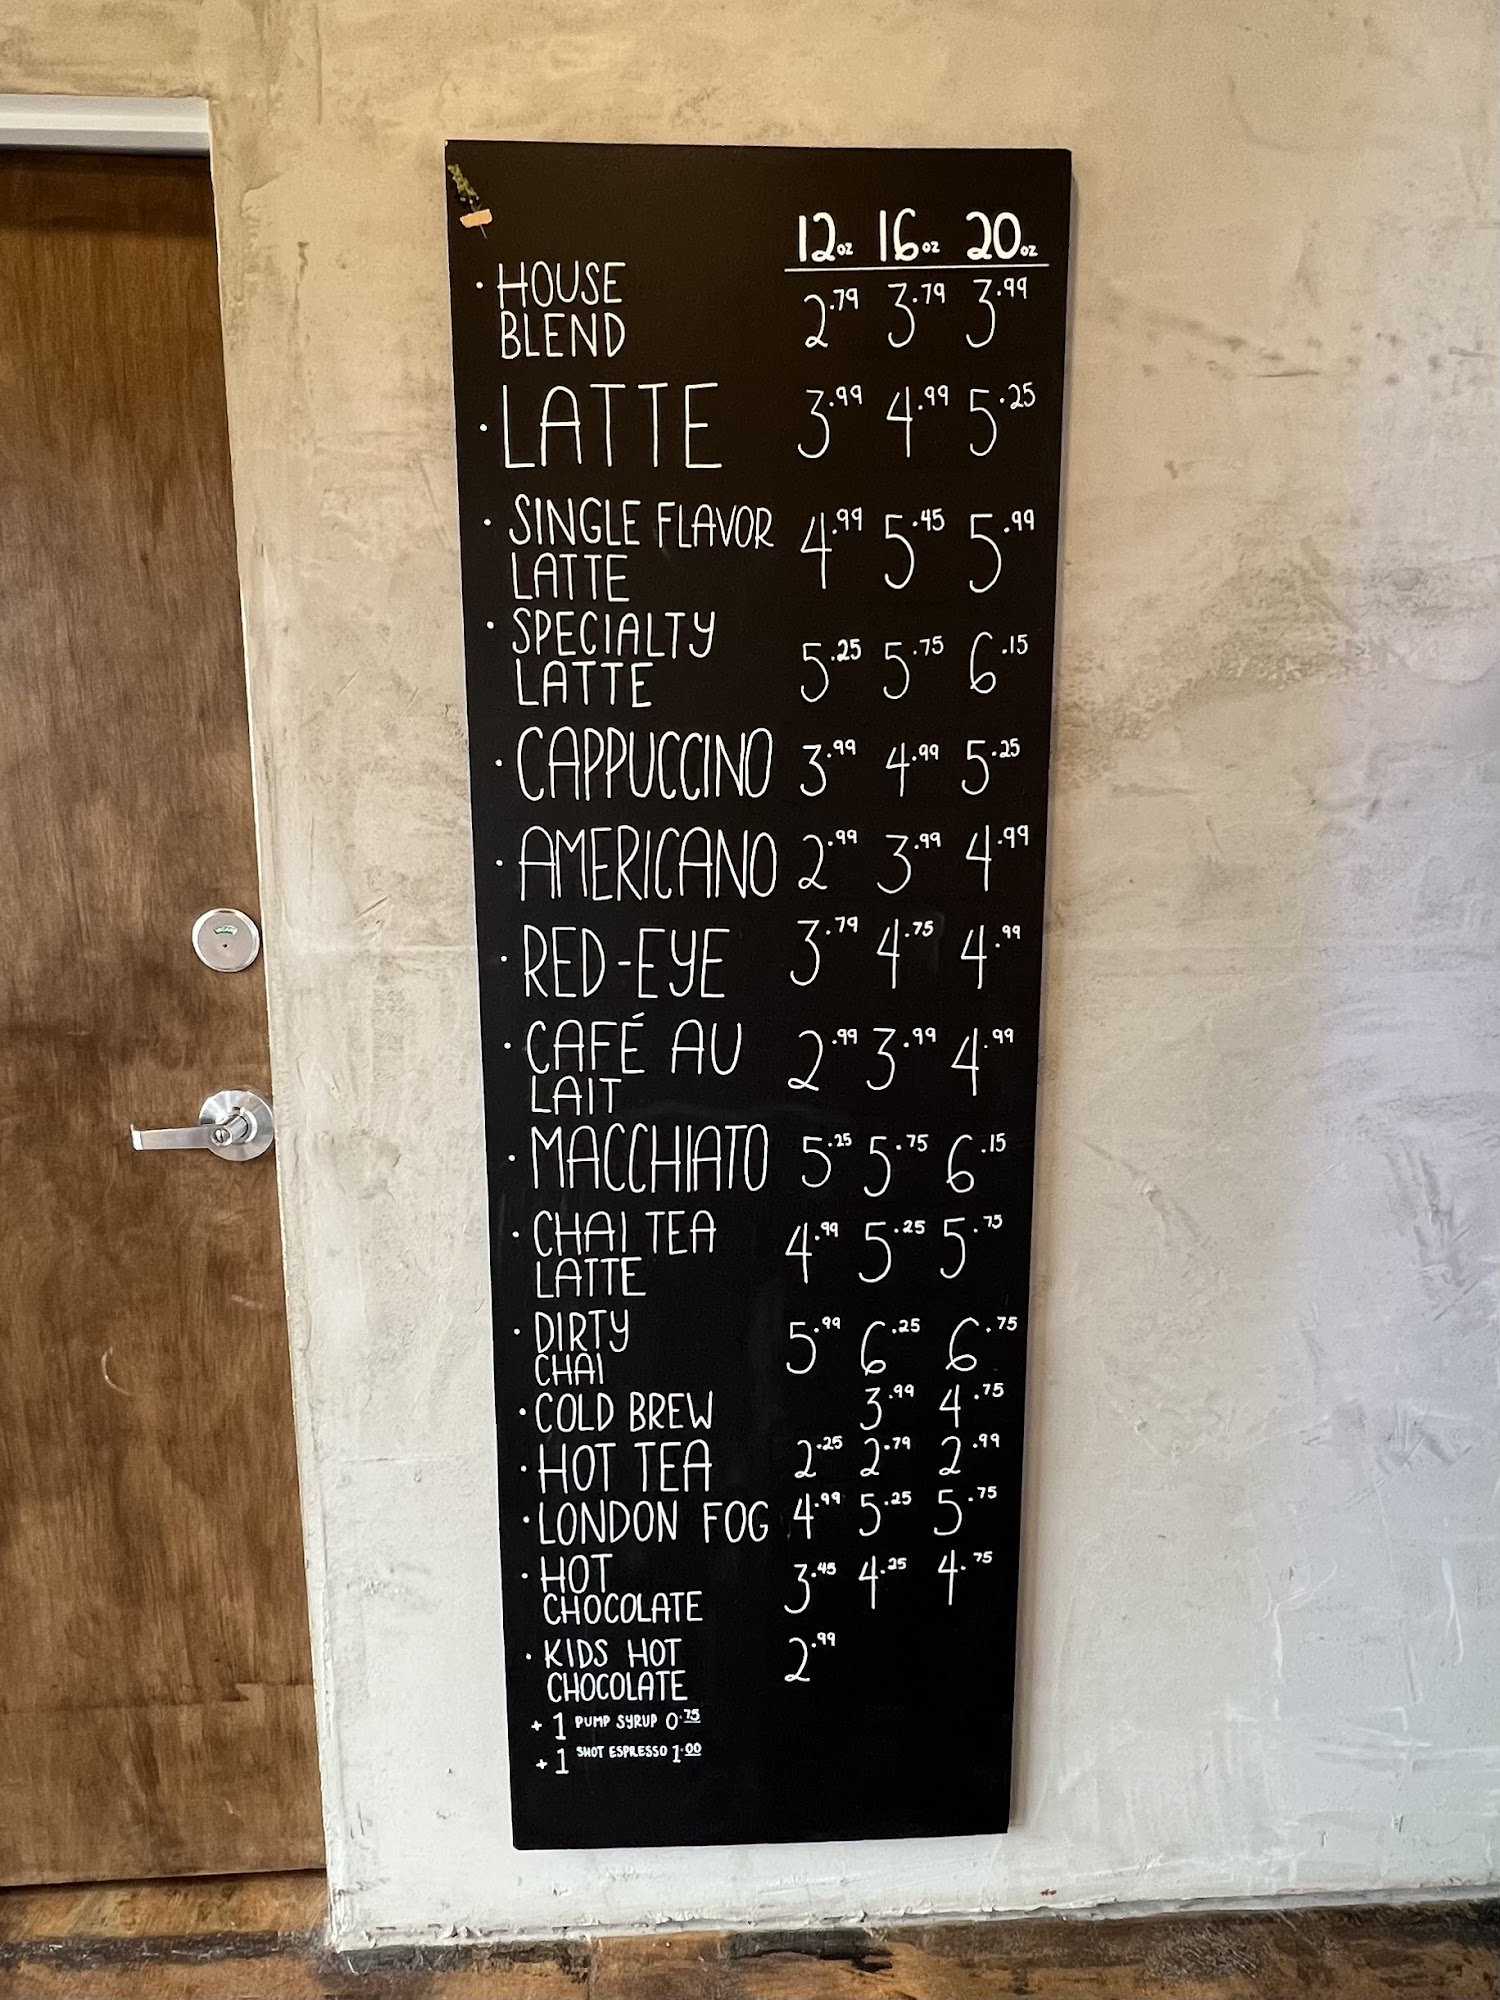 12oz 16oz 20oz
· HOUSE
BLEND 2.79 3.79 3.99
· LATTE 3.99 4.99 5.25
· SINGLE FLAVOR 4.99 5.45 5.99
LATTE
· SPECIALTY
LATTE 5.25 5.75 6.15
· CAPPUCCINO 3.99 4.99 5.25
· AMERICANO 2.99 3.99 4.99
· RED-EYE 3.79 4.75 4.99
· CAFÉ AU 2.99 3.99 4.99
LAIT
· MACCHIATO 5.25 5.75 6.15
· CHAI TEA 4.99 5.25 5.75
LATTE
· DIRTY 5.99 6.25 6.75
CHAI
· COLD BREW 3.99 4.75
· HOT TEA 2.25 2.79 2.99
· LONDON FOG 4.99 5.25 5.75
· HOT 3.45 4.25 4.75
CHOCOLATE
· KIDS HOT 2.99
CHOCOLATE
+ 1 PUMP SYRUP 0.75
+ 1 SHOT ESPRESSO 1.00